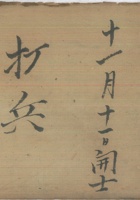 十一月十一日開士
打兵